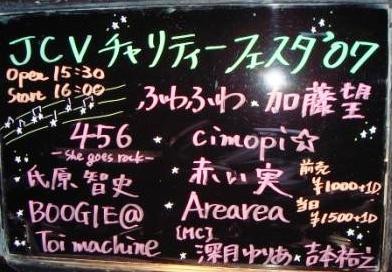 JCVチャリティーフェスタ'07
Open 15:30
Start 16:00
ふわふわ・加藤望
456
-She goes rock-
cimopi☆
氏原智史
赤い実
前売
¥1000+1D
BOOGIE@
Arearea
当日
¥1500+1D
Toi machine
[MC]
深月ゆりあ・吉本祐二